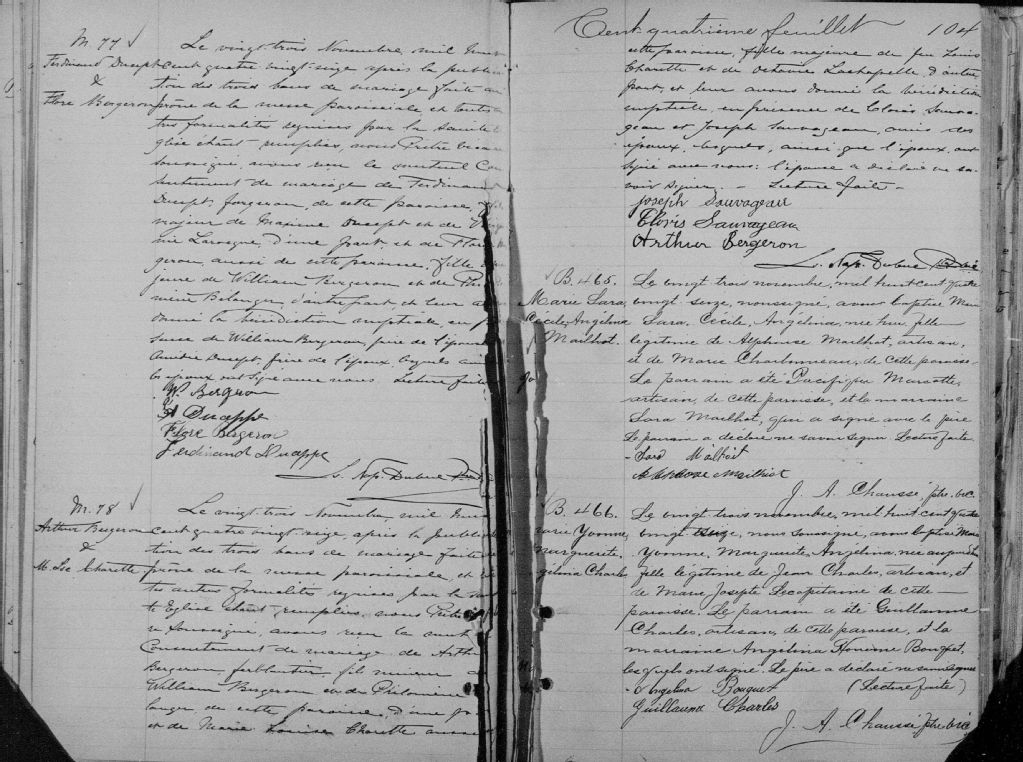 M. 77
Ferdinand Duceppe
&
Flore Bergeron
Le vingt trois Novembre, mil huit
cent quatre vingt seize après la publica
tion des trois bans de mariage faite au
prône de la messe paroissiale et toutes
tres formalités requises par la Sainte E
glise étant remplies, nous Prêtre vicaire
soussigné, avons reçu le mutuel Con
sentement de mariage de Ferdinand
Ducept, forgeron, de cette paroisse, fils
majeur de Maxime Ducept et de
nie Larocque, d'une part, et de Flore
geron, aussi de cette paroisse, fille
jeure de William Bergeron et de Phi
mène Bélanger, d'autre part et leur avons
donné la bénédiction nuptiale, en pré
sence de William Bergeron, père de l'épouse
Amédée Ducept, frère de l'époux lesquels ainsi
les époux ont signé avec nous. Lecture faite
W. Bergeron
A Duceppe
Flore Bergeron
Ferdinand Duceppe
L. Nap. Dubuc Ptre
M. 78
Arthur Bergeron
&
M. Lse Charette
Le vingt trois Novembre, mil huit
cent quatre vingt seize, après la publica
tion des trois bans de mariage faite au
prône de la messe paroissiale, et
tes autres formalités requises par la
te Eglise étant remplies, nous Prêtre
re soussigné, avons reçu le mutuel
Consentement de mariage de Arthur
Bergeron, ferblantier, fils mineur
William Bergeron et de Philomène
langer de cette paroisse, d'une part
et de Marie Louise Charette aussi
Cent-quatrième feuillet 104
cette paroisse, fille majeure de feu Louis
Charette et de Octavie Lachapelle, d'autre
part, et leur avons donné la bénédiction
nuptiale, en présence de Cloris Sauva-
geau et Joseph Sauvageau, amis des
époux, lesquels, ainsi que l'époux, ont
signé avec nous: l'épouse a déclaré ne sa-
voir signer. - Lecture faite -
Joseph Sauvageau
Cloris Sauvageau
Arthur Bergeron
L. Nap. Dubuc Ptre
B. 465.
Marie Sara,
Cécile, Angélina
Mailhot.
Le vingt trois novembre, mil huit cent quatre
vingt seize, nous soussigné, avons baptisé Marie
Sara, Cécile, Angélina, née hier, fille
légitime de Alphonse Mailhot, artisan,
et de Marie Charbonneau, de cette paroisse.
Le parrain a été Pacifique Marcotte,
artisan, de cette paroisse, et la marraine
Sara Mailhot, qui a signé avec le père
Le parrain a déclaré ne savoir signer. Lecture faite
- Sara Mailhot
Alphonse Mailhiot
J. A. Chaussé, ptre. vic.
B. 466.
Marie Yvonne,
Marguerite,
Angélina Charles
Le vingt trois novembre, mil huit cent quatre
vingt seize, nous soussigné, avons baptisé Marie
Yvonne, Marguerite, Angélina, née aujourd'hui
fille légitime de Jean Charles, artisan, et
de Marie Josepte Lecapitaine de cette
paroisse. Le parrain a été Guillaume
Charles, artisan, de cette paroisse, et la
marraine Angélina Bouquet,
lesquels ont signé. Le père a déclaré ne savoir signer
- Angelina Bouquet (Lecture faite)
Guillaume Charles
J. A. Chaussé, ptre. vic.